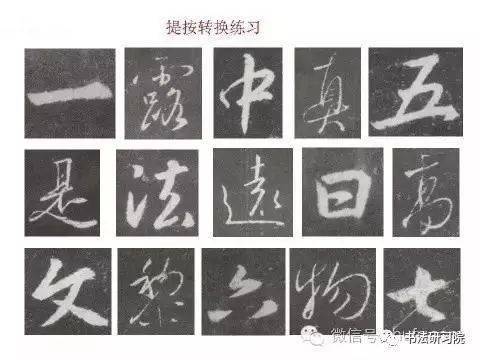 提按转换练习
一露中真五
是法遠曰高
文黎六物七
微信号
书法研习院